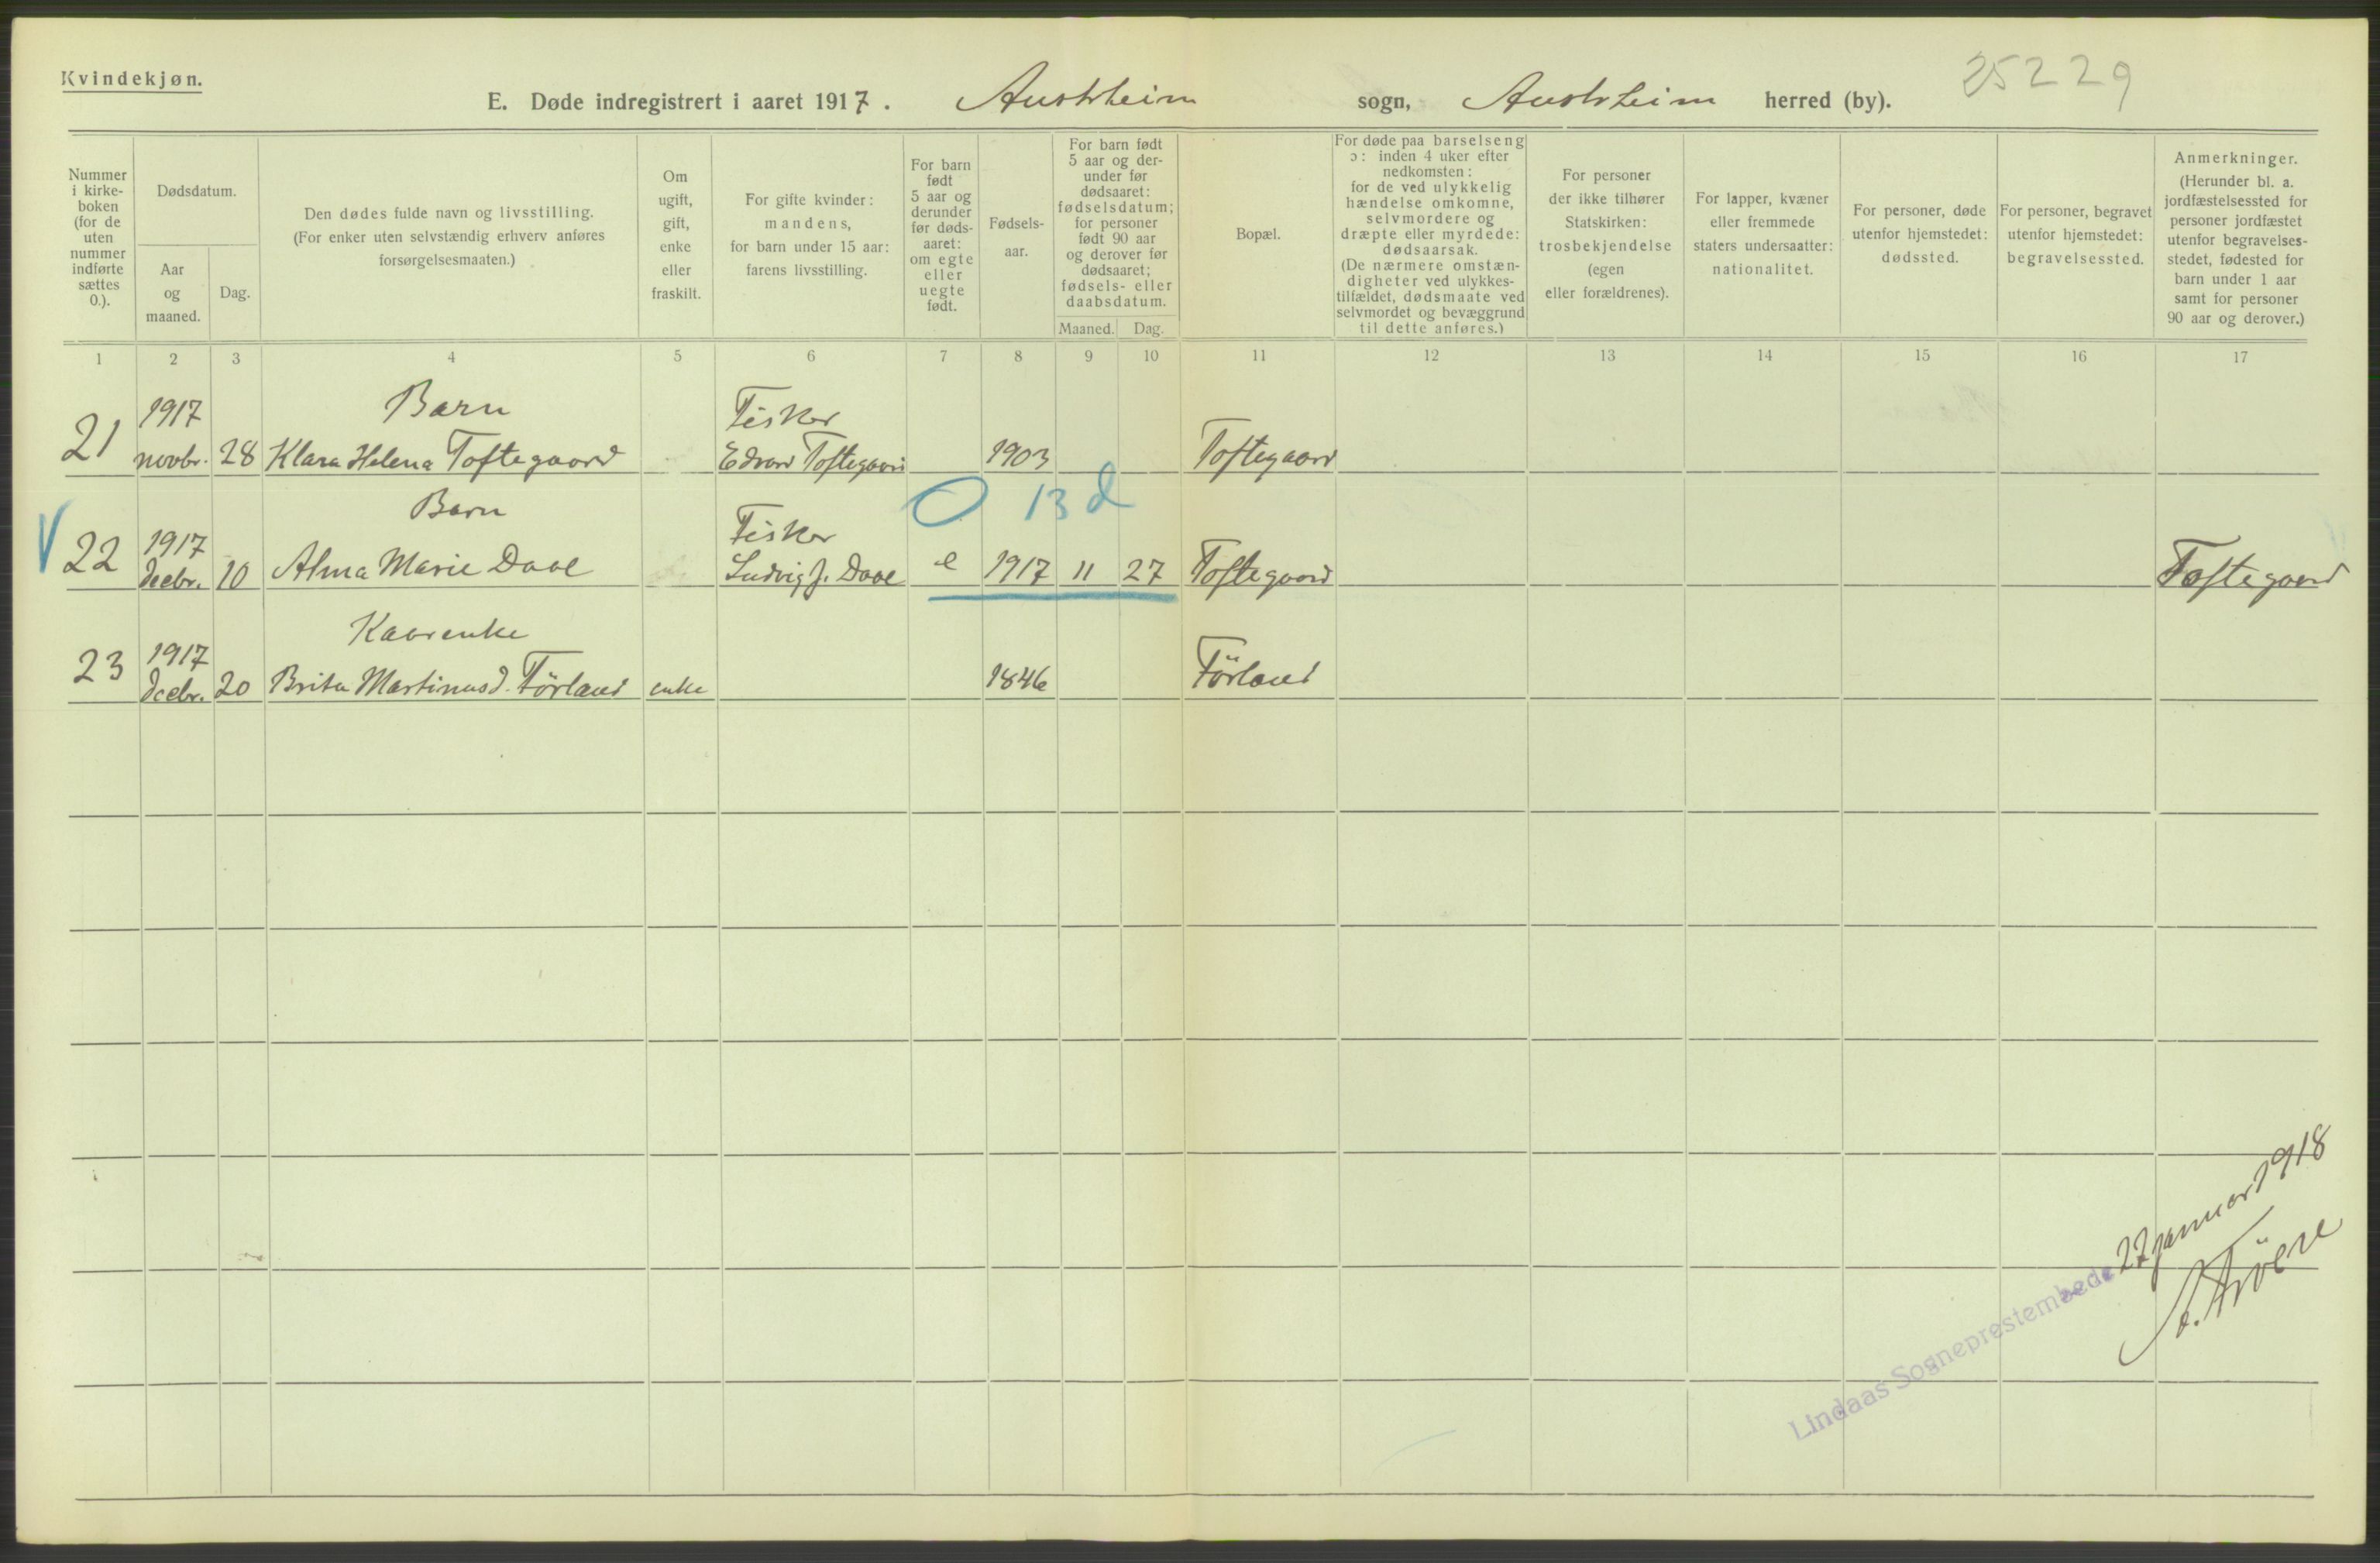 Kvindekjøn.
E. Døde indregistrert i aaret 1917. Austrheim sogn, Austrheim herred (by).
25229
Nummer
i kirke-
boken
(for de
uten
nummer
indførte
sættes
0.).
Dødsdatum.
Aar
og
maaned.
Dag.
Den dødes fulde navn og livsstilling.
(For enker uten selvstændig erhverv anføres
forsørgelsesmaaten.)
Om
ugift,
gift,
enke
eller
fraskilt.
For gifte kvinder:
mandens,
for barn under 15 aar:
farens livsstilling.
For barn
født
5 aar og
derunder
før døds-
aaret:
om egte
eller
uegte
født.
Fødsels-
aar.
For barn født
5 aar og der-
under før
dødsaaret:
fødselsdatum;
for personer
født 90 aar
og derover før
dødsaaret;
fødsels- eller
daabsdatum.
Maaned. Dag.
Bopæl.
For døde paa barselseng
ɔ: inden 4 uker efter
nedkomsten:
for de ved ulykkelig
hændelse omkomne,
selvmordere og
dræpte eller myrdede:
dødsaarsak.
(De nærmere omstæn-
digheter ved ulykkes-
tilfældet, dødsmaate ved
selvmordet og bevæggrund
til dette anføres.)
For personer
der ikke tilhører
Statskirken:
trosbekjendelse
(egen
eller forældrenes).
For lapper, kvæner
eller fremmede
staters undersaatter:
nationalitet.
For personer, døde
utenfor hjemstedet:
dødssted.
For personer, begravet
utenfor hjemstedet:
begravelsessted.
Anmerkninger.
(Herunder bl. a.
jordfæstelsessted for
personer jordfæstet
utenfor begravelses-
stedet, fødested for
barn under 1 aar
samt for personer
90 aar og derover.)
1 2 3 4 5 6 7 8 9 10 11 12 13 14 15 16 17
1917 Barn Fisker
21 novbr. 28 Klara Helena Toftegaard Edvard Toftegaard 1903 Toftegaard
0 13 d
1917 Barn Fisker
V 22 decbr. 10 Alma Marie Dale Ludvig J. Dale e 1917 11 27 Toftegaard Toftegaard
1917 Kaarenke
23 decbr. 20 Brita Martinusd. Förland enke 1846 Förland
Lindaas Sogneprestembede 22 januar 1918